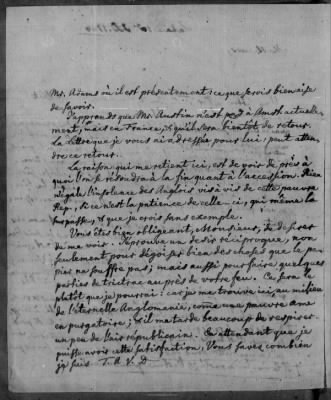 Mr. Adams où il est présentement: ce que je serois bien aise
de savoir.
J'apprends que Mr. Austin n'est pas à Amst. actuelle-
ment, mais en France, & qu'il sera bientôt de retour.
La Lettre que je vous ai adressée pour lui, peut atten-
dre ce retour.
La raison qui me retient ici, est de voir de près à
quoi l'on se résoudra à la fin quant à l'accession. Rien
n'égale l'insolence des Anglois vis à vis de cette pauvre
Rep., si ce n'est la patience de celle-ci, qui même la
surpasse, & que je crois sans exemple.
Vous êtes bien obligeant, Monsieur, de desirer
de me voir. J'éprouve un desir réciproque, non
seulement pour dégoiser bien des choses que le pa-
pier ne souffre pas; mais aussi pour faire quelques
parties de trictrac auprès de votre feu. Ce sera le
plutôt que je pourrai: car je me trouve ici au milieu
de l'éternelle Anglomanie, come une pauvre ame
en purgatoire; & il me tarde beaucoup de respirer
un peu de l'air républicain. En attendant que je
puisse avoir cette satisfaction, Vous savez combien
je suis T. A. V. D